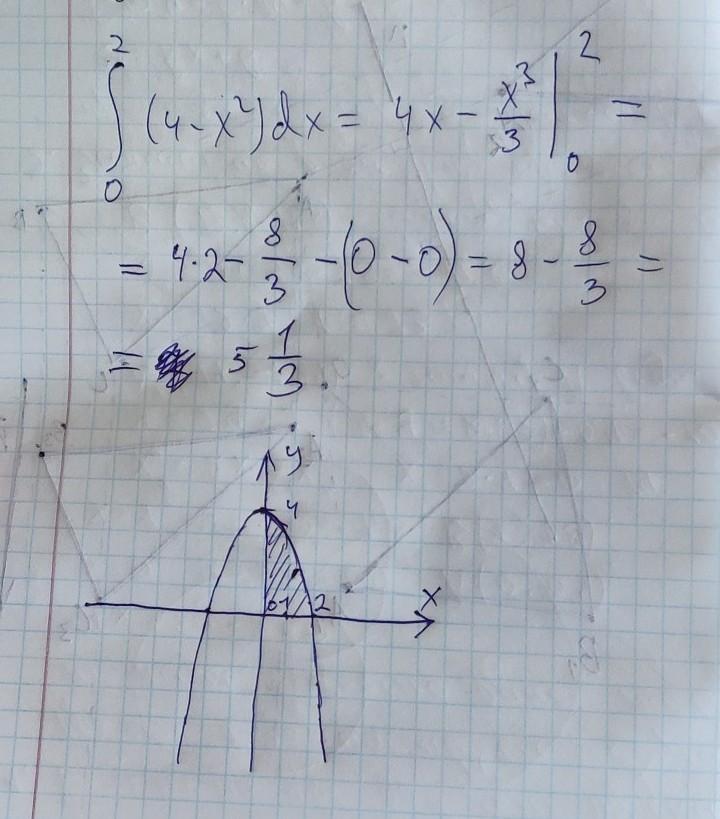 ∫₀² (4 - x²) dx = 4x - x³/3 |₀² =
= 4·2 - 8/3 - (0 - 0) = 8 - 8/3 =
= 5 1/3.
y
4
0 1 2 x